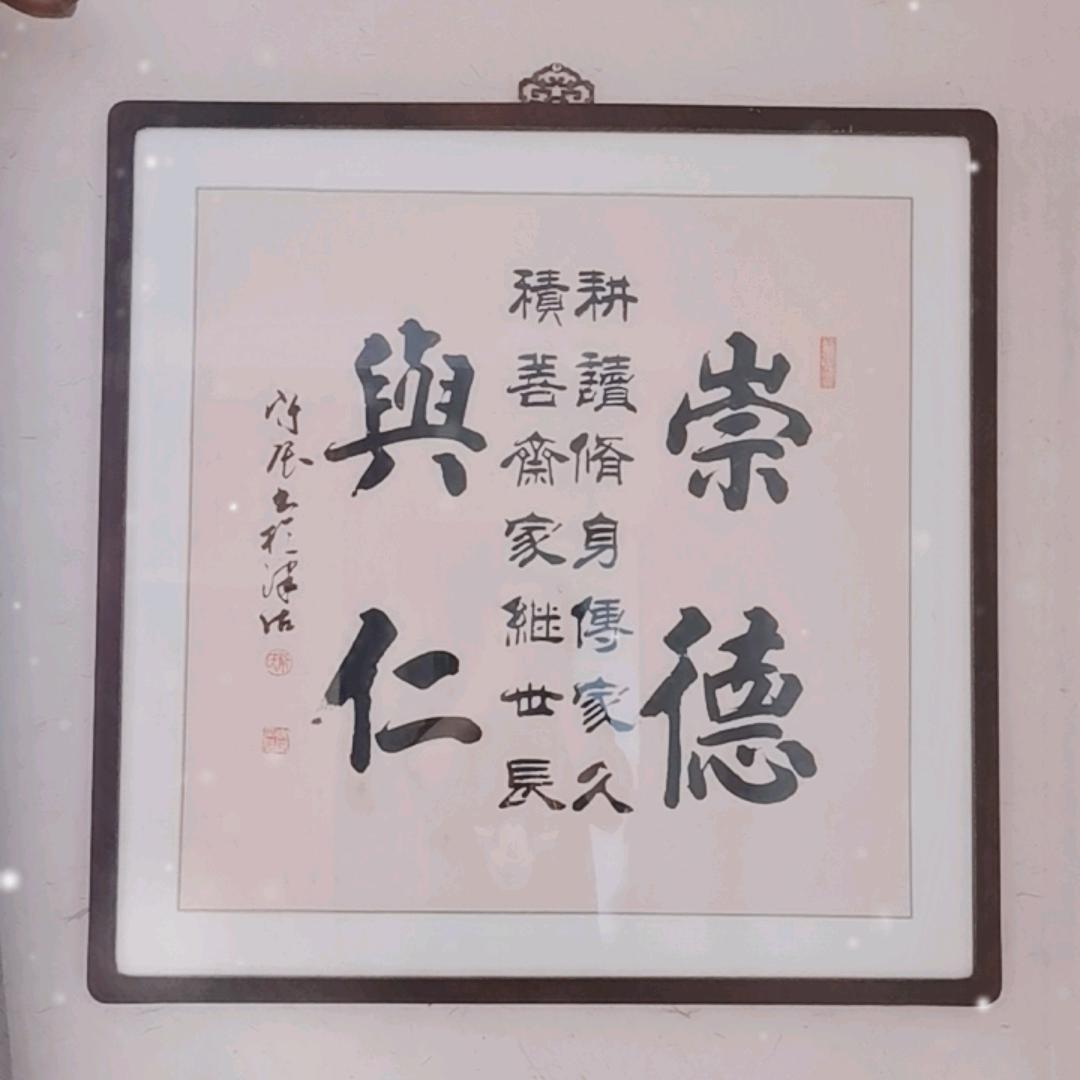 崇德
耕讀脩身傳家久
積善齋家継世長
與仁